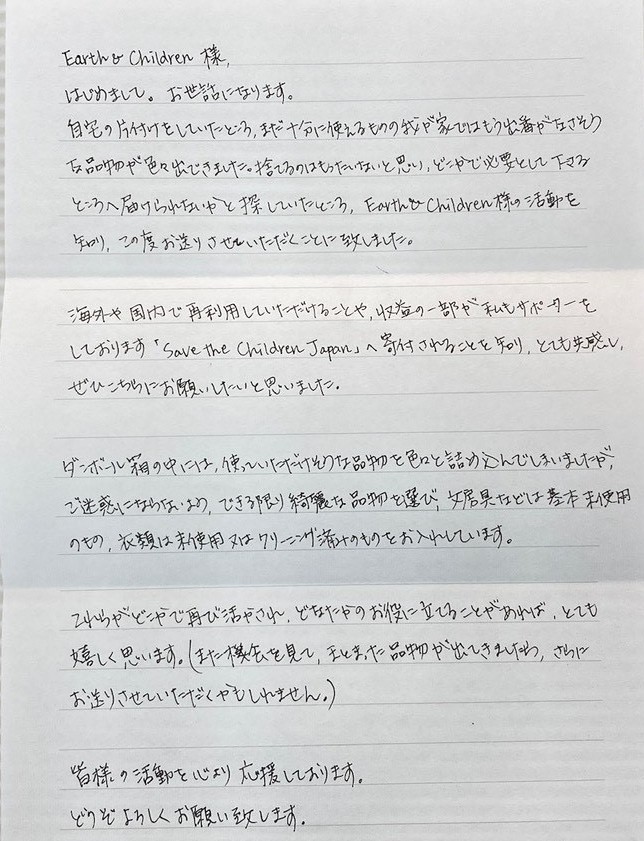 Earth & Children 様,
はじめまして。お世話になります。
自宅の片付けをしていたところ,まだ十分に使えるものの我が家ではもう出番がなさそう
な品物が色々出てきました。捨てるのはもったいないと思い,どこかで必要として下さる
ところへ届けられないかと探していたところ,Earth & Children様の活動を
知り,この度お送りさせていただくことに致しました。
海外や国内で再利用していただけることや,収益の一部が私もサポーターを
しております「Save the Children Japan」へ寄付されることを知り,とても共感し,
ぜひこちらにお願いしたいと思いました。
ダンボール箱の中には,使っていただけそうな品物を色々と詰め込んでしまいましたが,
ご迷惑にならないよう,できる限り綺麗な品物を選び,文房具などは基本未使用
のもの,衣類は未使用又はクリーニング済みのものをお入れしています。
これらがどこかで再び活かされ,どなたかのお役に立てることがあれば,とても
嬉しく思います。(また機会を見て,まとまった品物が出てきましたら,さらに
お送りさせていただくかもしれません。)
皆様の活動を心より応援しております。
どうぞよろしくお願い致します。